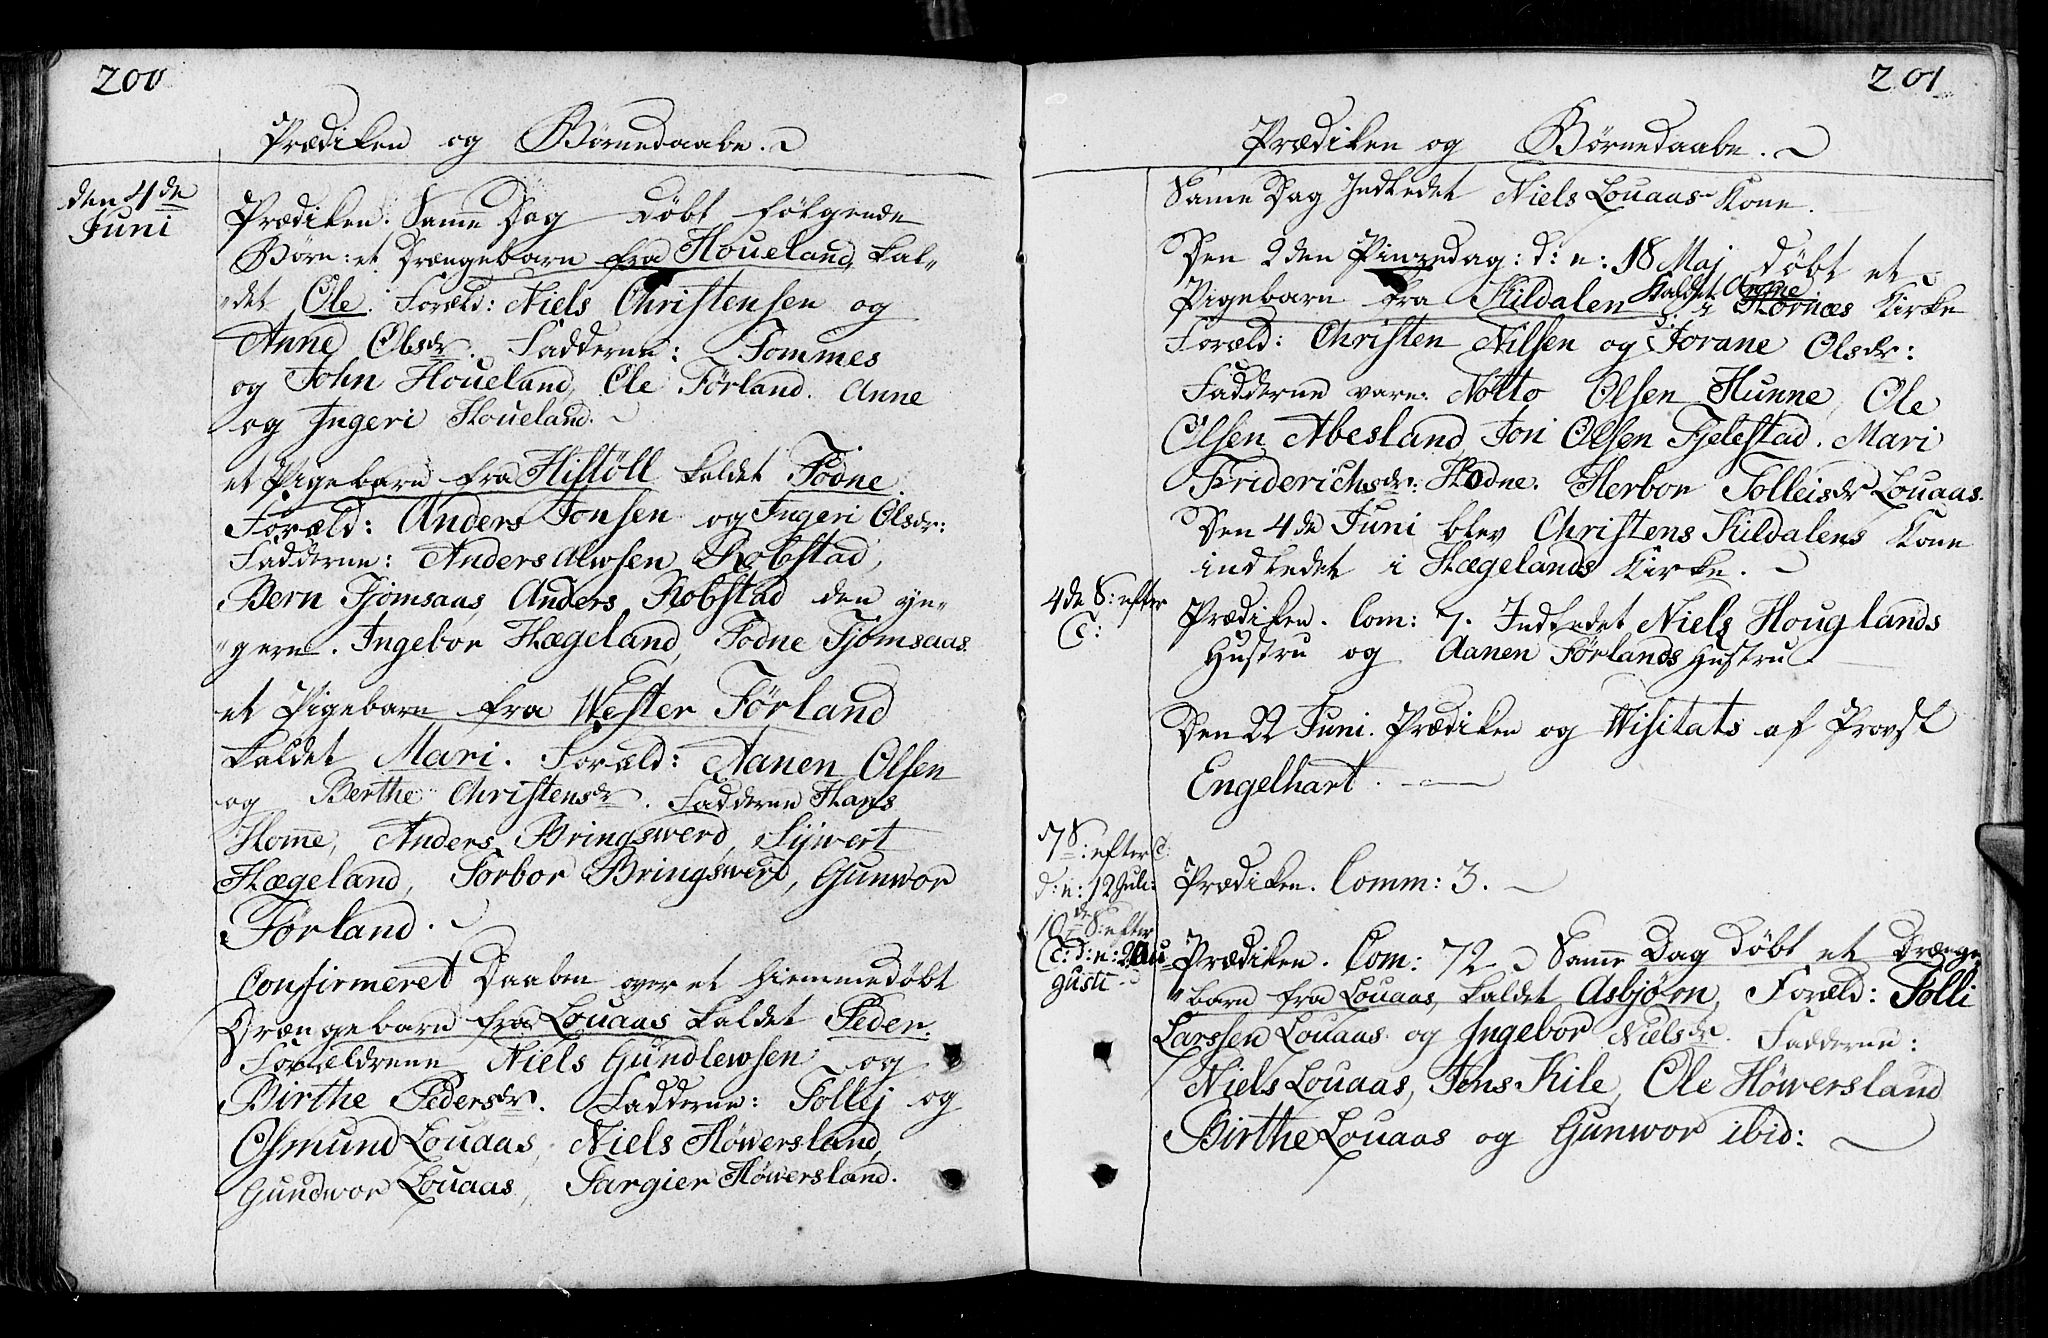 200
Prædiken og Børnedaabe.
den 4de
Juni
Prædiken. Samme Dag døbt følgende
Børn: et Drængebarn fra Houeland kal„
„det Ole. Foræld: Niels Christensen og
Anne Olsdr. Fadderne: Tommes
og John Houeland, Ole Förland. Anne
og Jngeri Houeland.
et Pigebarn fra Histöll kaldet Todne.
Foræld: Anders Jonsen og Jngeri Olsdr:
Fadderne: Anders Alwsen Robstad,
Bern Tjomsaas, Anders Robstad den yn„
„gern. Jngebor Hægeland, Todne Tjomsaas.
et Pigebarn fra Wester Förland
kaldet Mari. Foræld: Aanen Olsen
og Berthe Christensdr. Fadderne Hans
Home, Anders Bringswerd, Sijwert
Hægeland, Torbor Bringswerd, Gunwor
Förland.
Confirmeret Daaben over et hiemmedöbt
Drængebarn fra Louaas kaldet Peder.
Forældrene Niels Gundlewsen og
Birthe Pedersdr. Fadderne: Tollej og
Osmund Louaas, Niels Höwersland,
Gundwor Louaas, Targier Höwersland.
201
Prædiken og Børnedaabe.
Same Dag Jndledet Niels Louaas Kone.
Den 2den Pinzedag: d: e: 18 Maj döbt et
Pigebarn fra Kildalen kaldet Anne i Kirke
Foræld: Christen Nilsen og Jorane Olsdr:
Fadderne vare: Notto Olsen Hunne, Ole
Olsen Abesland, Jon Olsen Fjelestad. Mari
Friderichsdr: Hodne. Herbor Tolleisdr Louaas.
Den 4de Juni blev Christens Kildalens Kone
indledet i Hægelands Kirke.
4de S: efter
T:
Prædiken. Com: 7. Jndledet Niels Houglands
Hustru og Aanen Förlands Hustru
Den 22 Juni. Prædiken og Wisitats af Provst
Engelhart.
7 S: efter T:
d: e: 12 Juli:
Prædiken. Comm: 3.
10de S: efter
T: d: e: 2 Au
gusti
Prædiken. Com: 72. Same Dag döbt et Drænge„
„barn fra Louaas, kaldet Asbjørn, Foræld: Tolli
Larssen Louaas og Jngebor Nielsdr. Fadderne:
Niels Louaas, Jens Kile, Ole Höwersland
Birthe Louaas og Gunwor ibid: